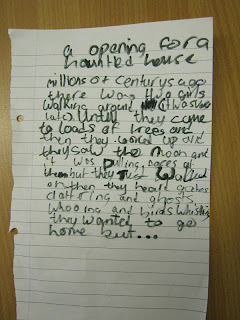 a opening for a
haunted house
millions of centurys ago
there was two girls
walking around it was
late Until they came
to loads of trees and
then they looked up and
they saw the Moon and
it was pulling faces at
them but they just walked
on then they heard
clattering and ghosts
whooing and birds whistling
they wanted to go
home but...